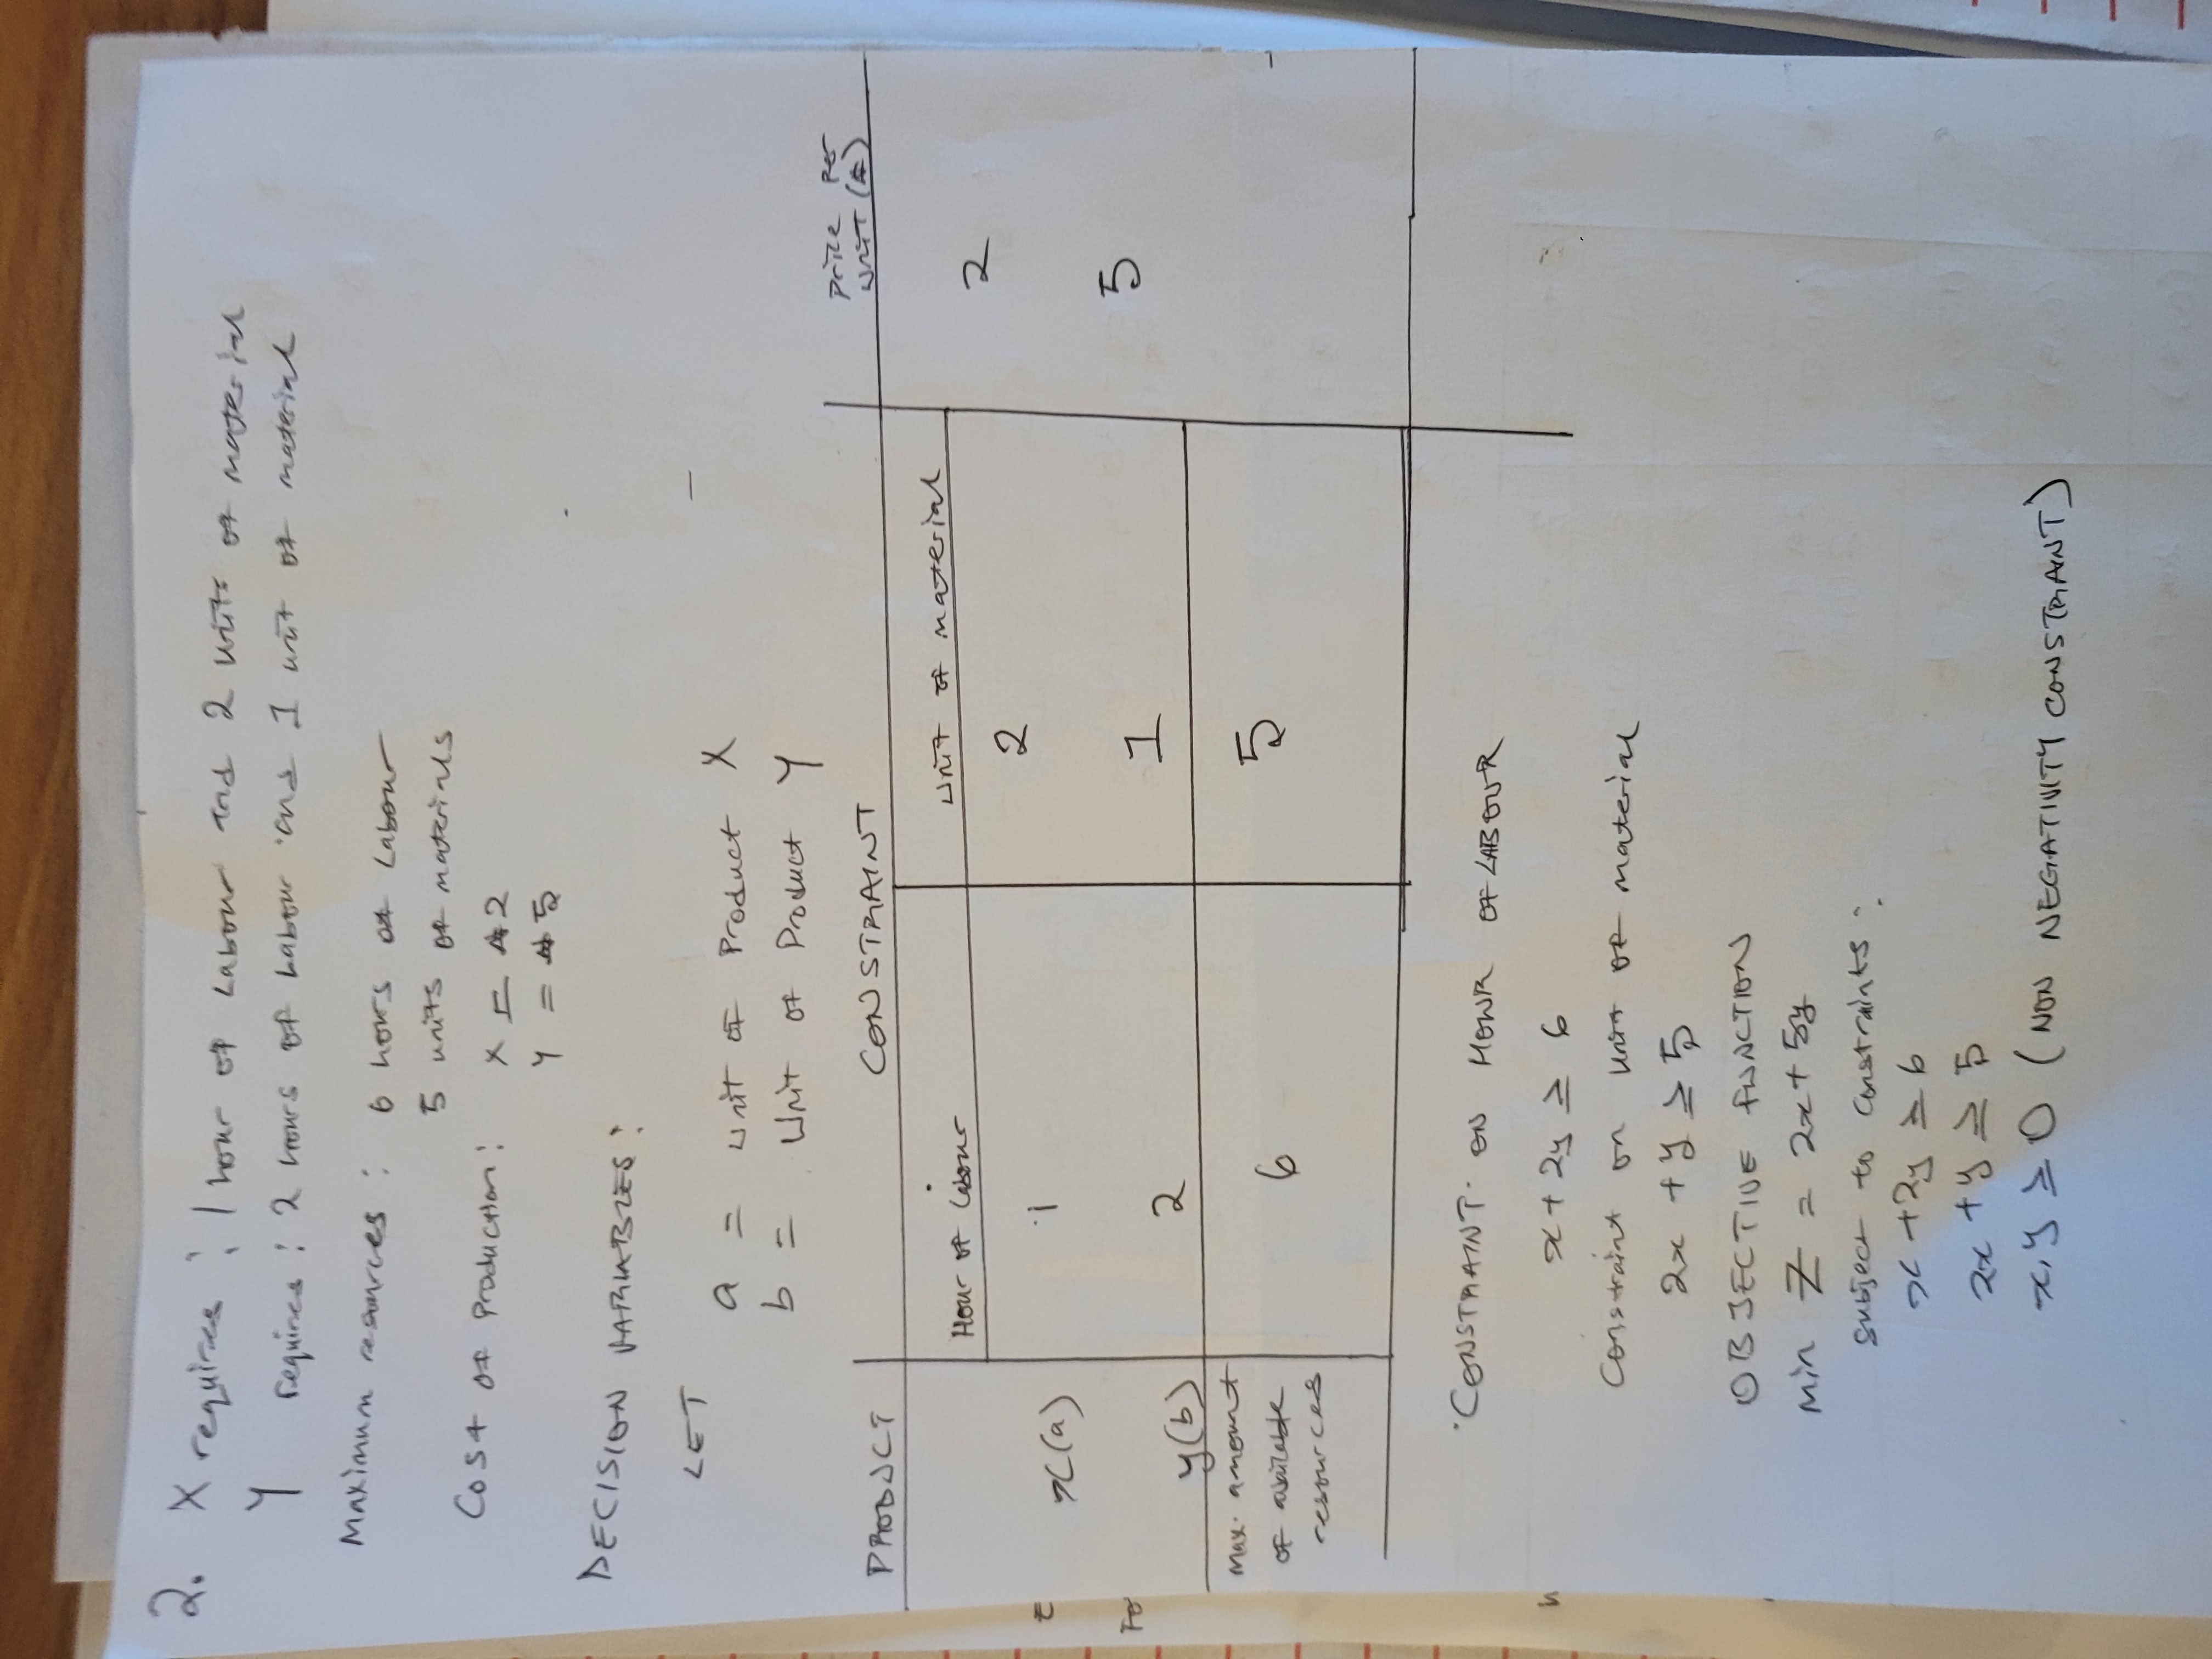 2. X requires : 1 hour of Labour and 2 units of material
Y requires : 2 hours of Labour and 1 unit of material
Maximum resources : 6 hours of Labour
5 units of materials
Cost of Production : X = ₦2
Y = ₦5
DECISION VARIABLES :
LET
a = Unit of Product X
b = Unit of Product Y
PRODUCT CONSTRAINT Price Per Unit (₦)
Hour of Labour Unit of material
x(a) 1 2 2
y(b) 2 1 5
Max. amount of available resources 6 5
CONSTRAINT ON HOUR OF LABOUR
x + 2y ≥ 6
Constraint on Unit of material
2x + y ≥ 5
OBJECTIVE FUNCTION
Min Z = 2x + 5y
Subject to Constraints :
x + 2y ≥ 6
2x + y ≥ 5
x, y ≥ 0 (NON NEGATIVITY CONSTRAINT)